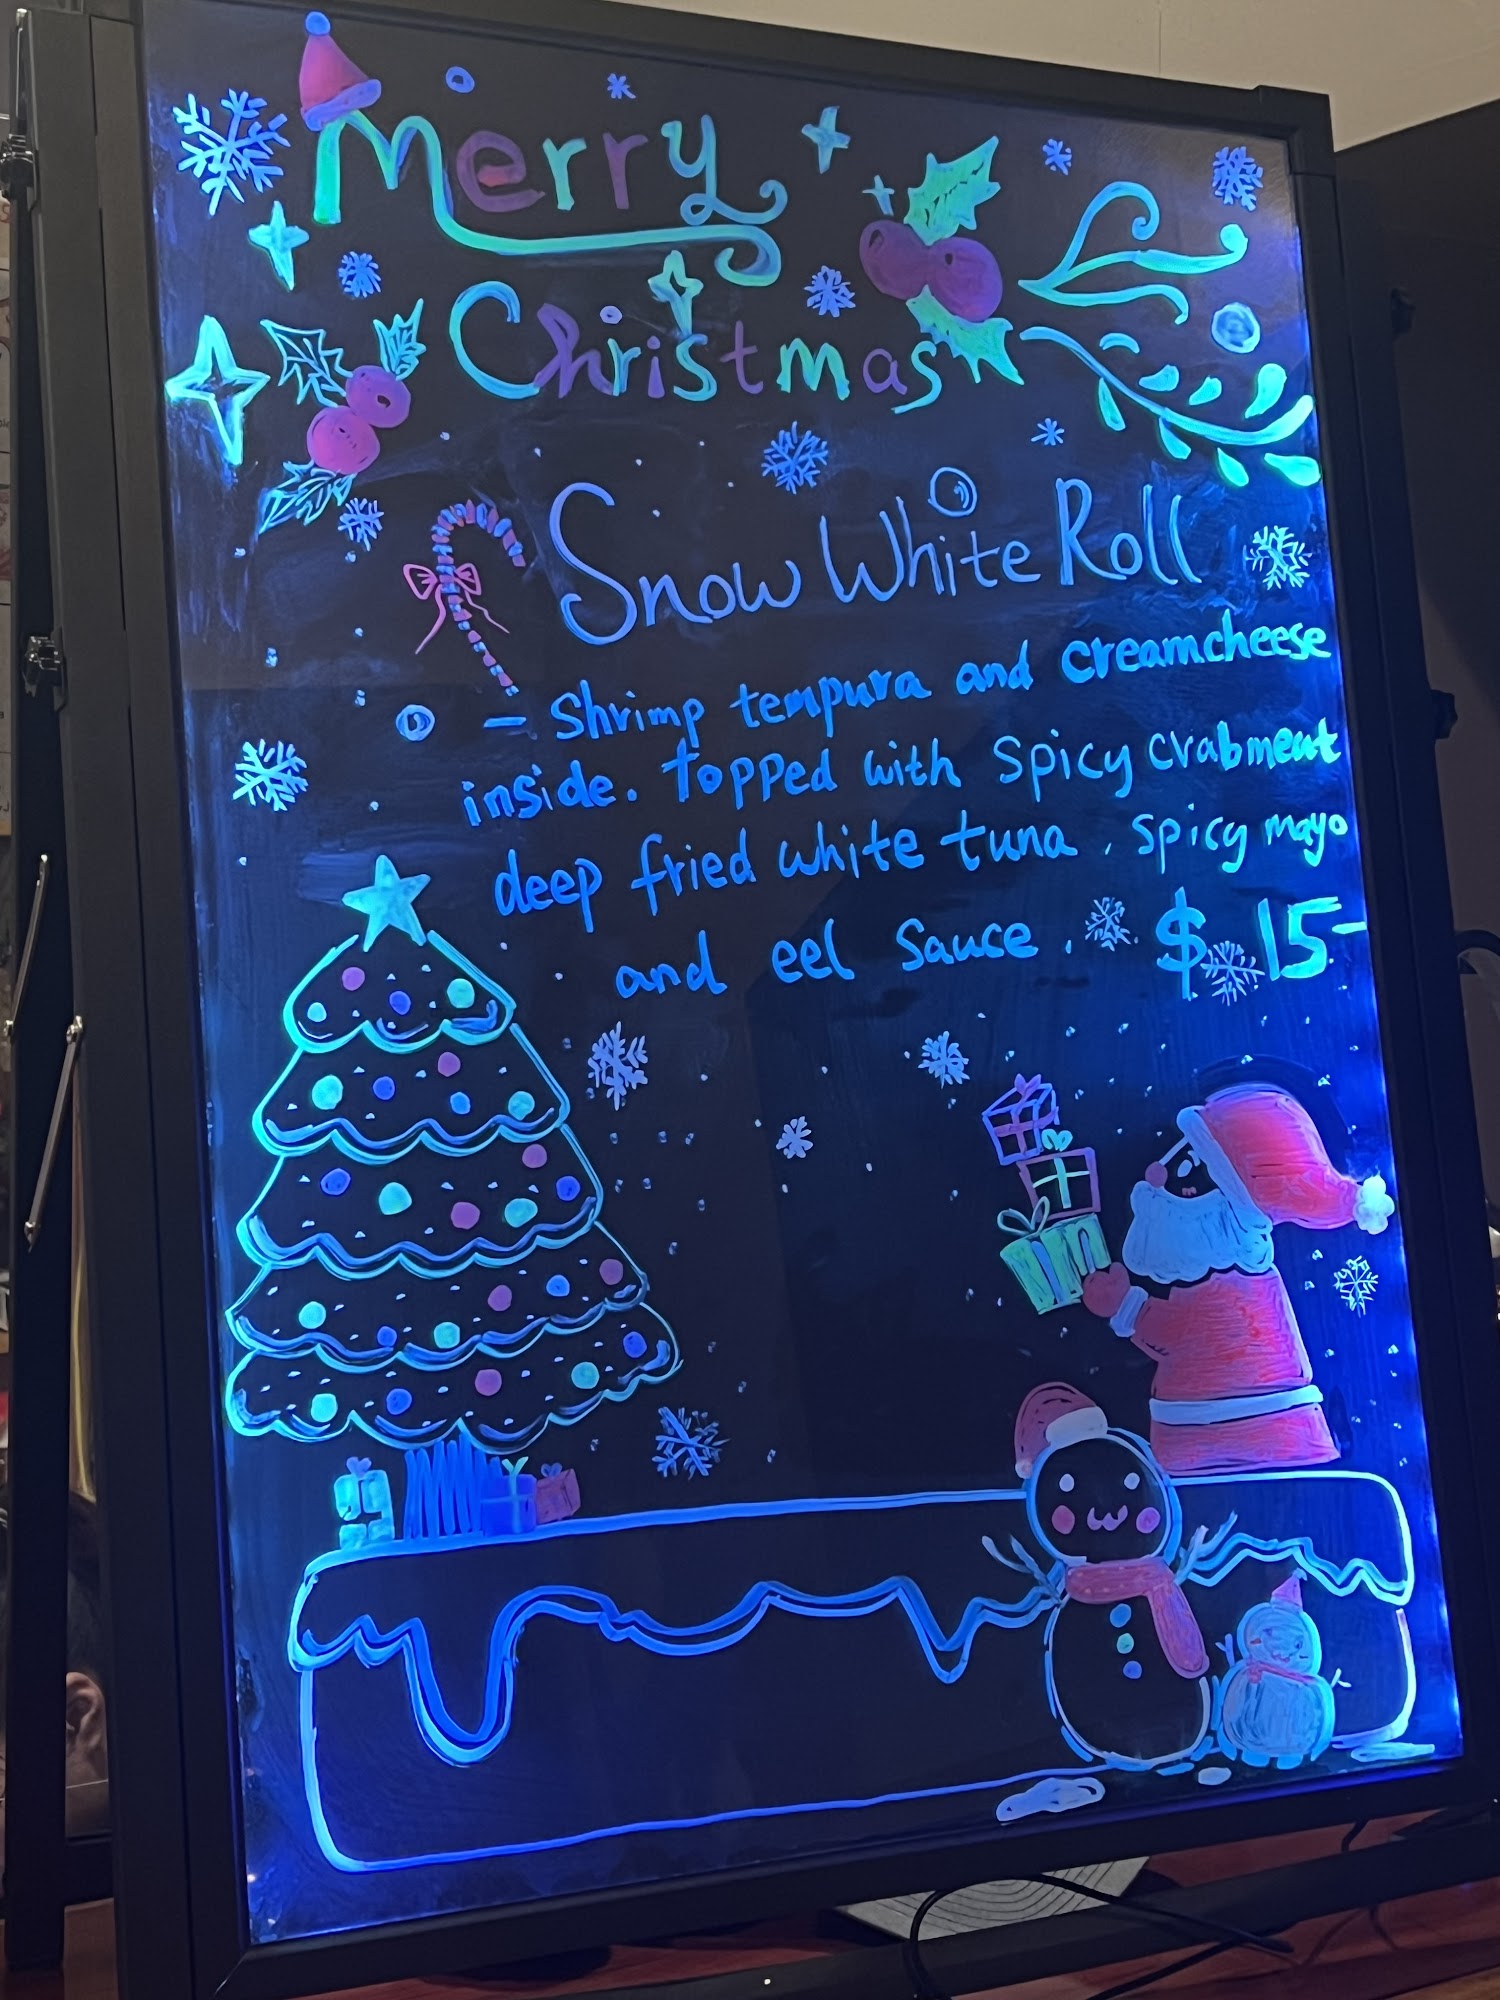 Merry
Christmas
Snow White Roll
- Shrimp tempura and creamcheese
inside. Topped with spicy crabmeat
deep fried white tuna. spicy mayo
and eel sauce. $15-